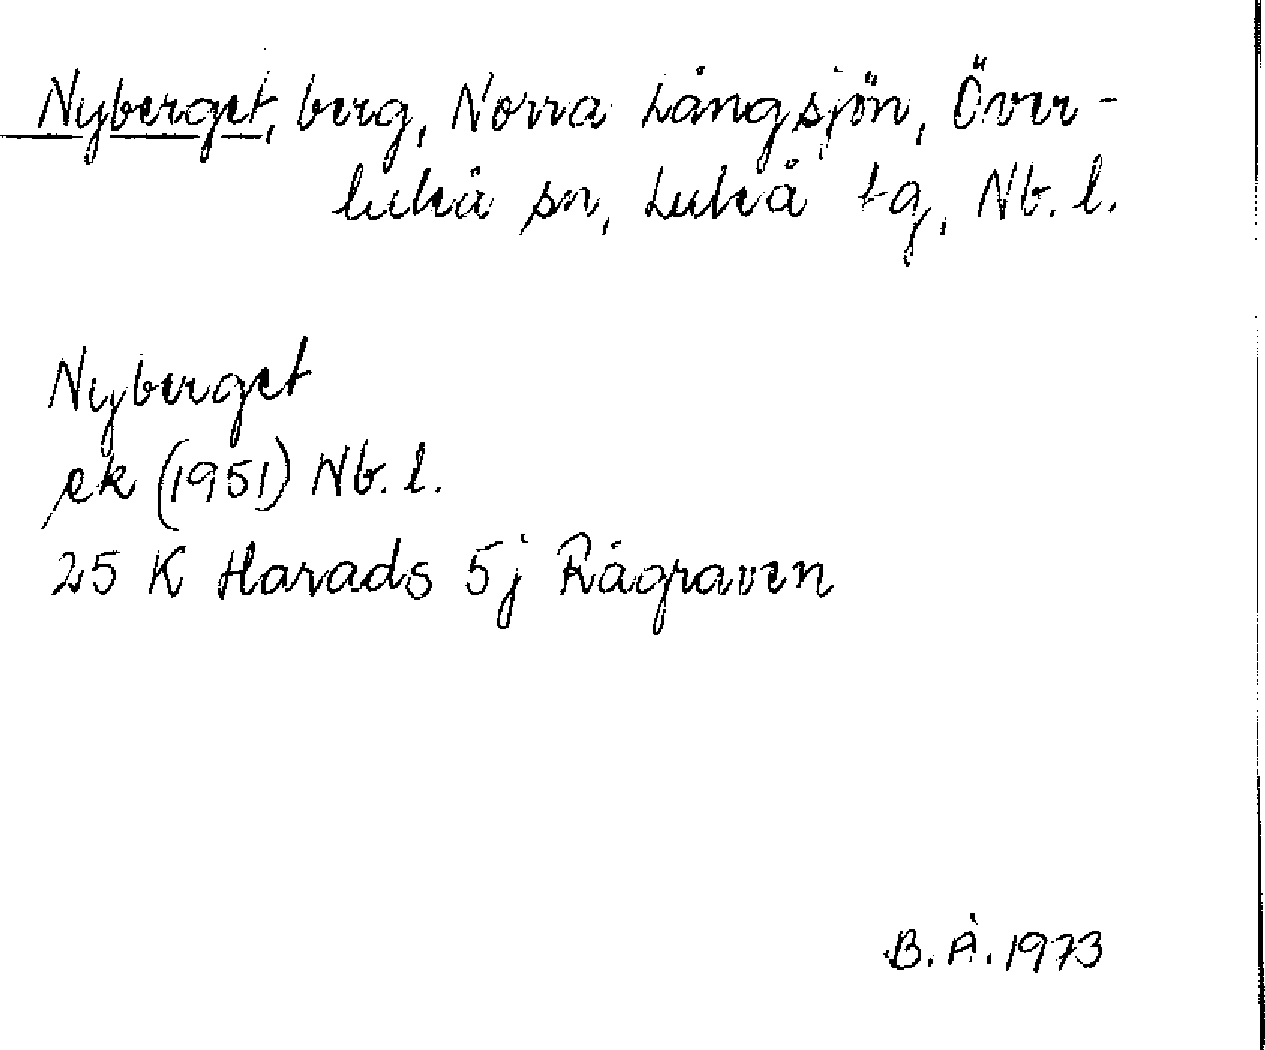 Nyberget, berg, Norra Långsjön, Över-
luleå sn, Luleå tg, Nb. l.
Nyberget
ek (1951) Nb. l.
25 K Harads 5j Rågraven
B. Å. 1973